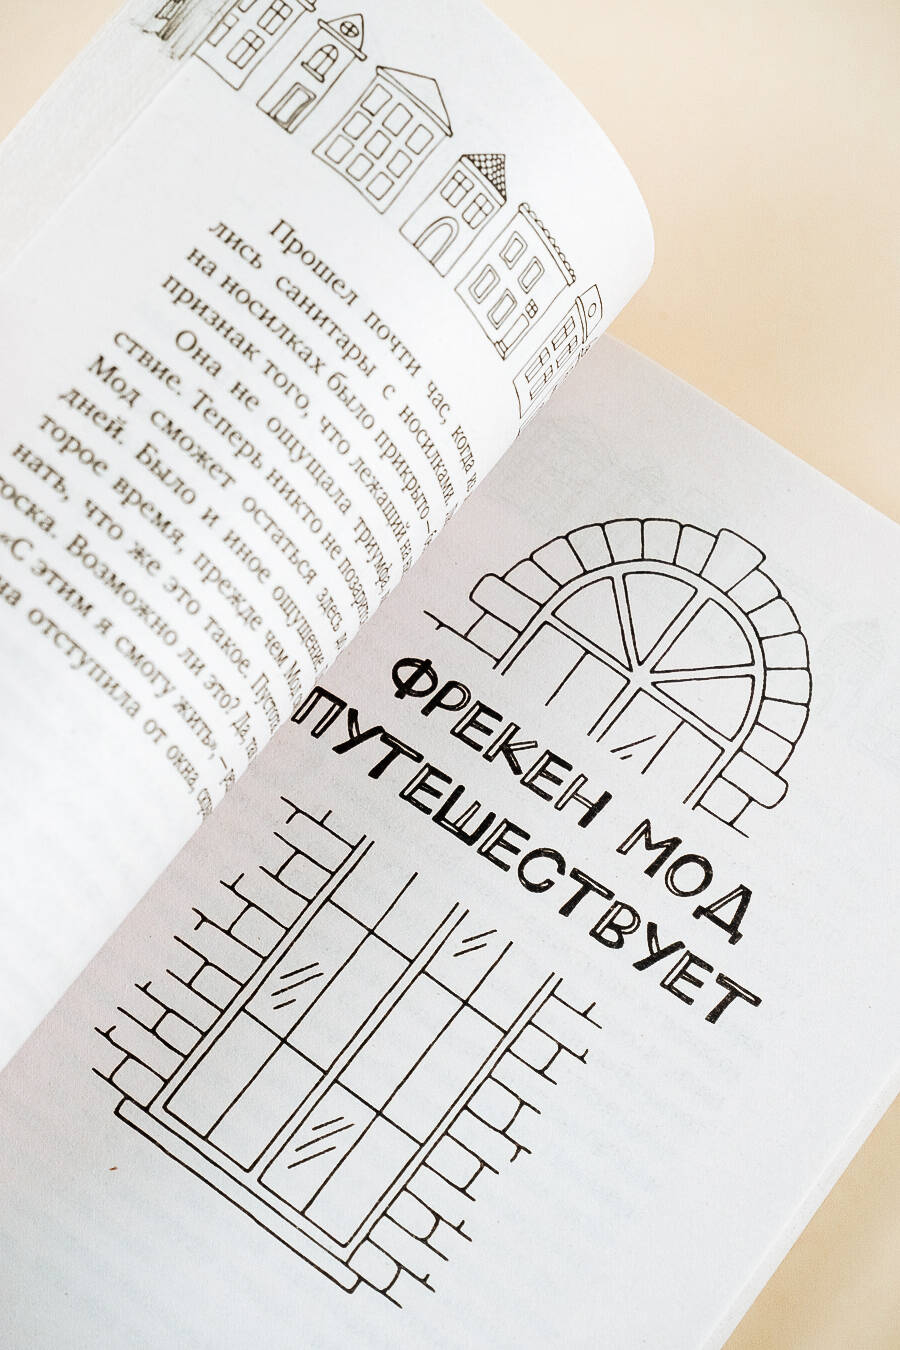 Прошел почти час, когда
лись санитары с носилками.
на носилках было прикрыто –
признак того, что лежащий на
Она не ощущала триумфа.
ствие. Теперь никто не
Мод сможет остаться здесь
дней. Было и иное ощущение.
торое время, прежде чем Мод
нать, что же это такое. Пустота
тоска. Возможно ли это? Да
«С этим я смогу жить», –
на отступила от окна,
ФРЕКЕН МОД
ПУТЕШЕСТВУЕТ